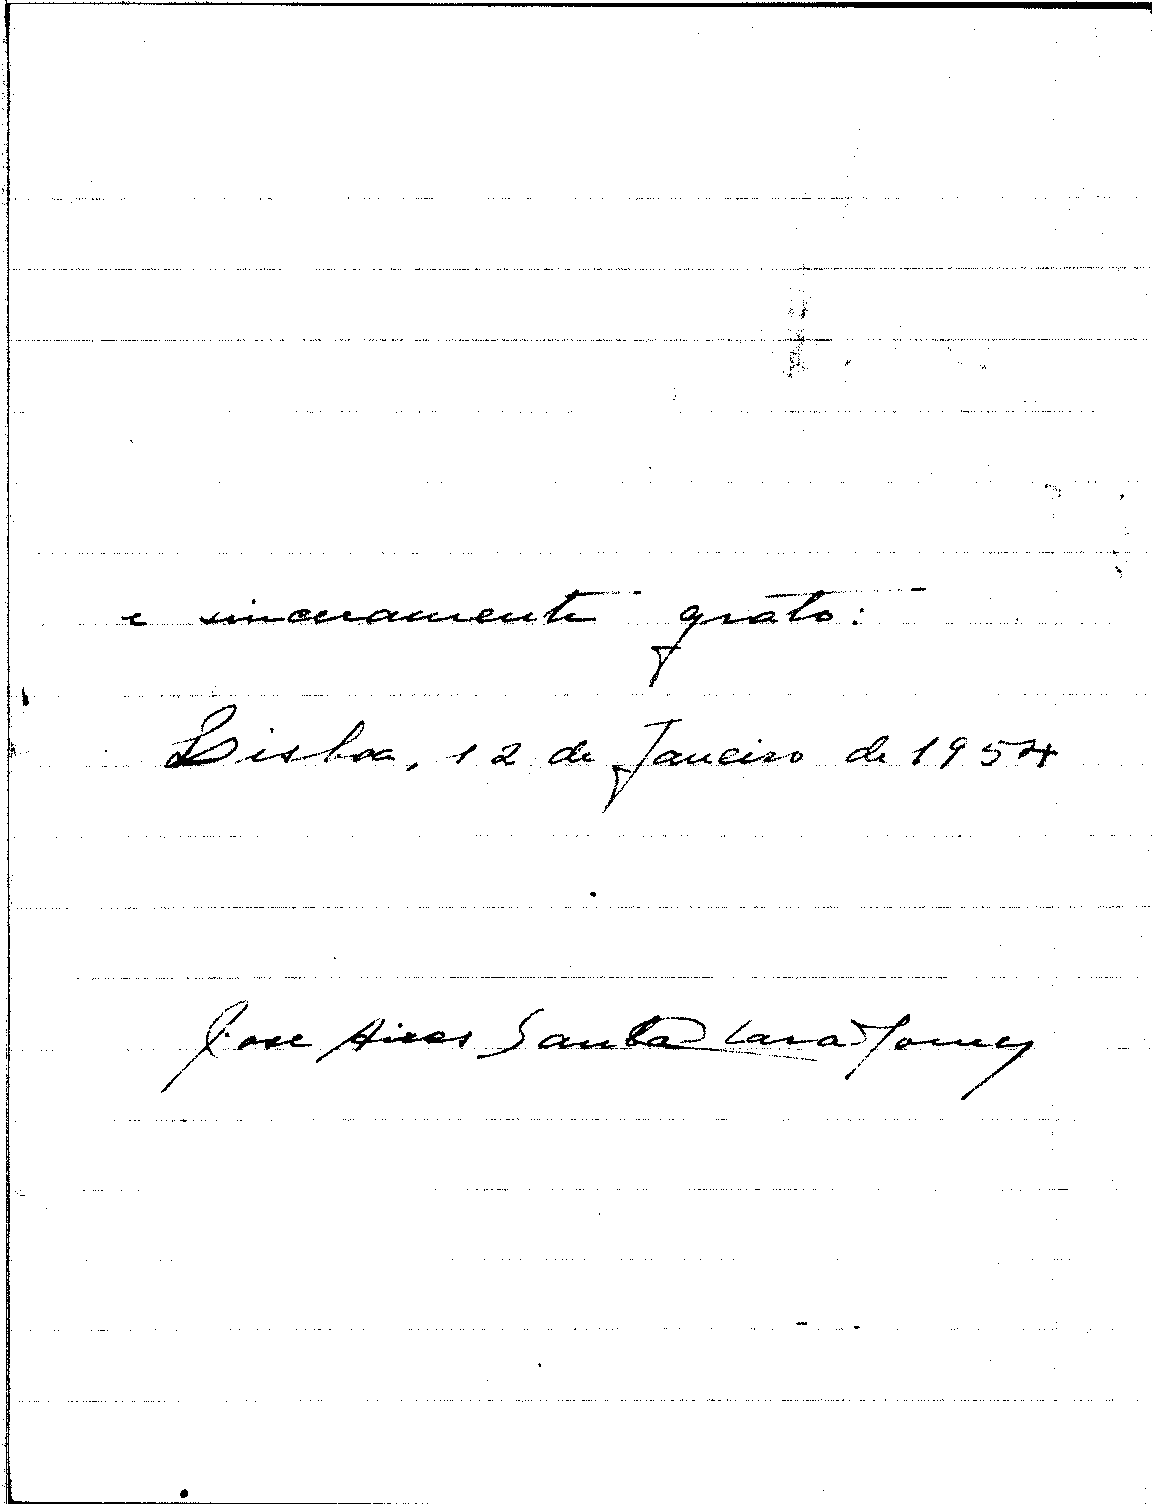 e sinceramente grato:
Lisboa, 12 de Janeiro de 1954
Jose Aires Santa Clara Gomes